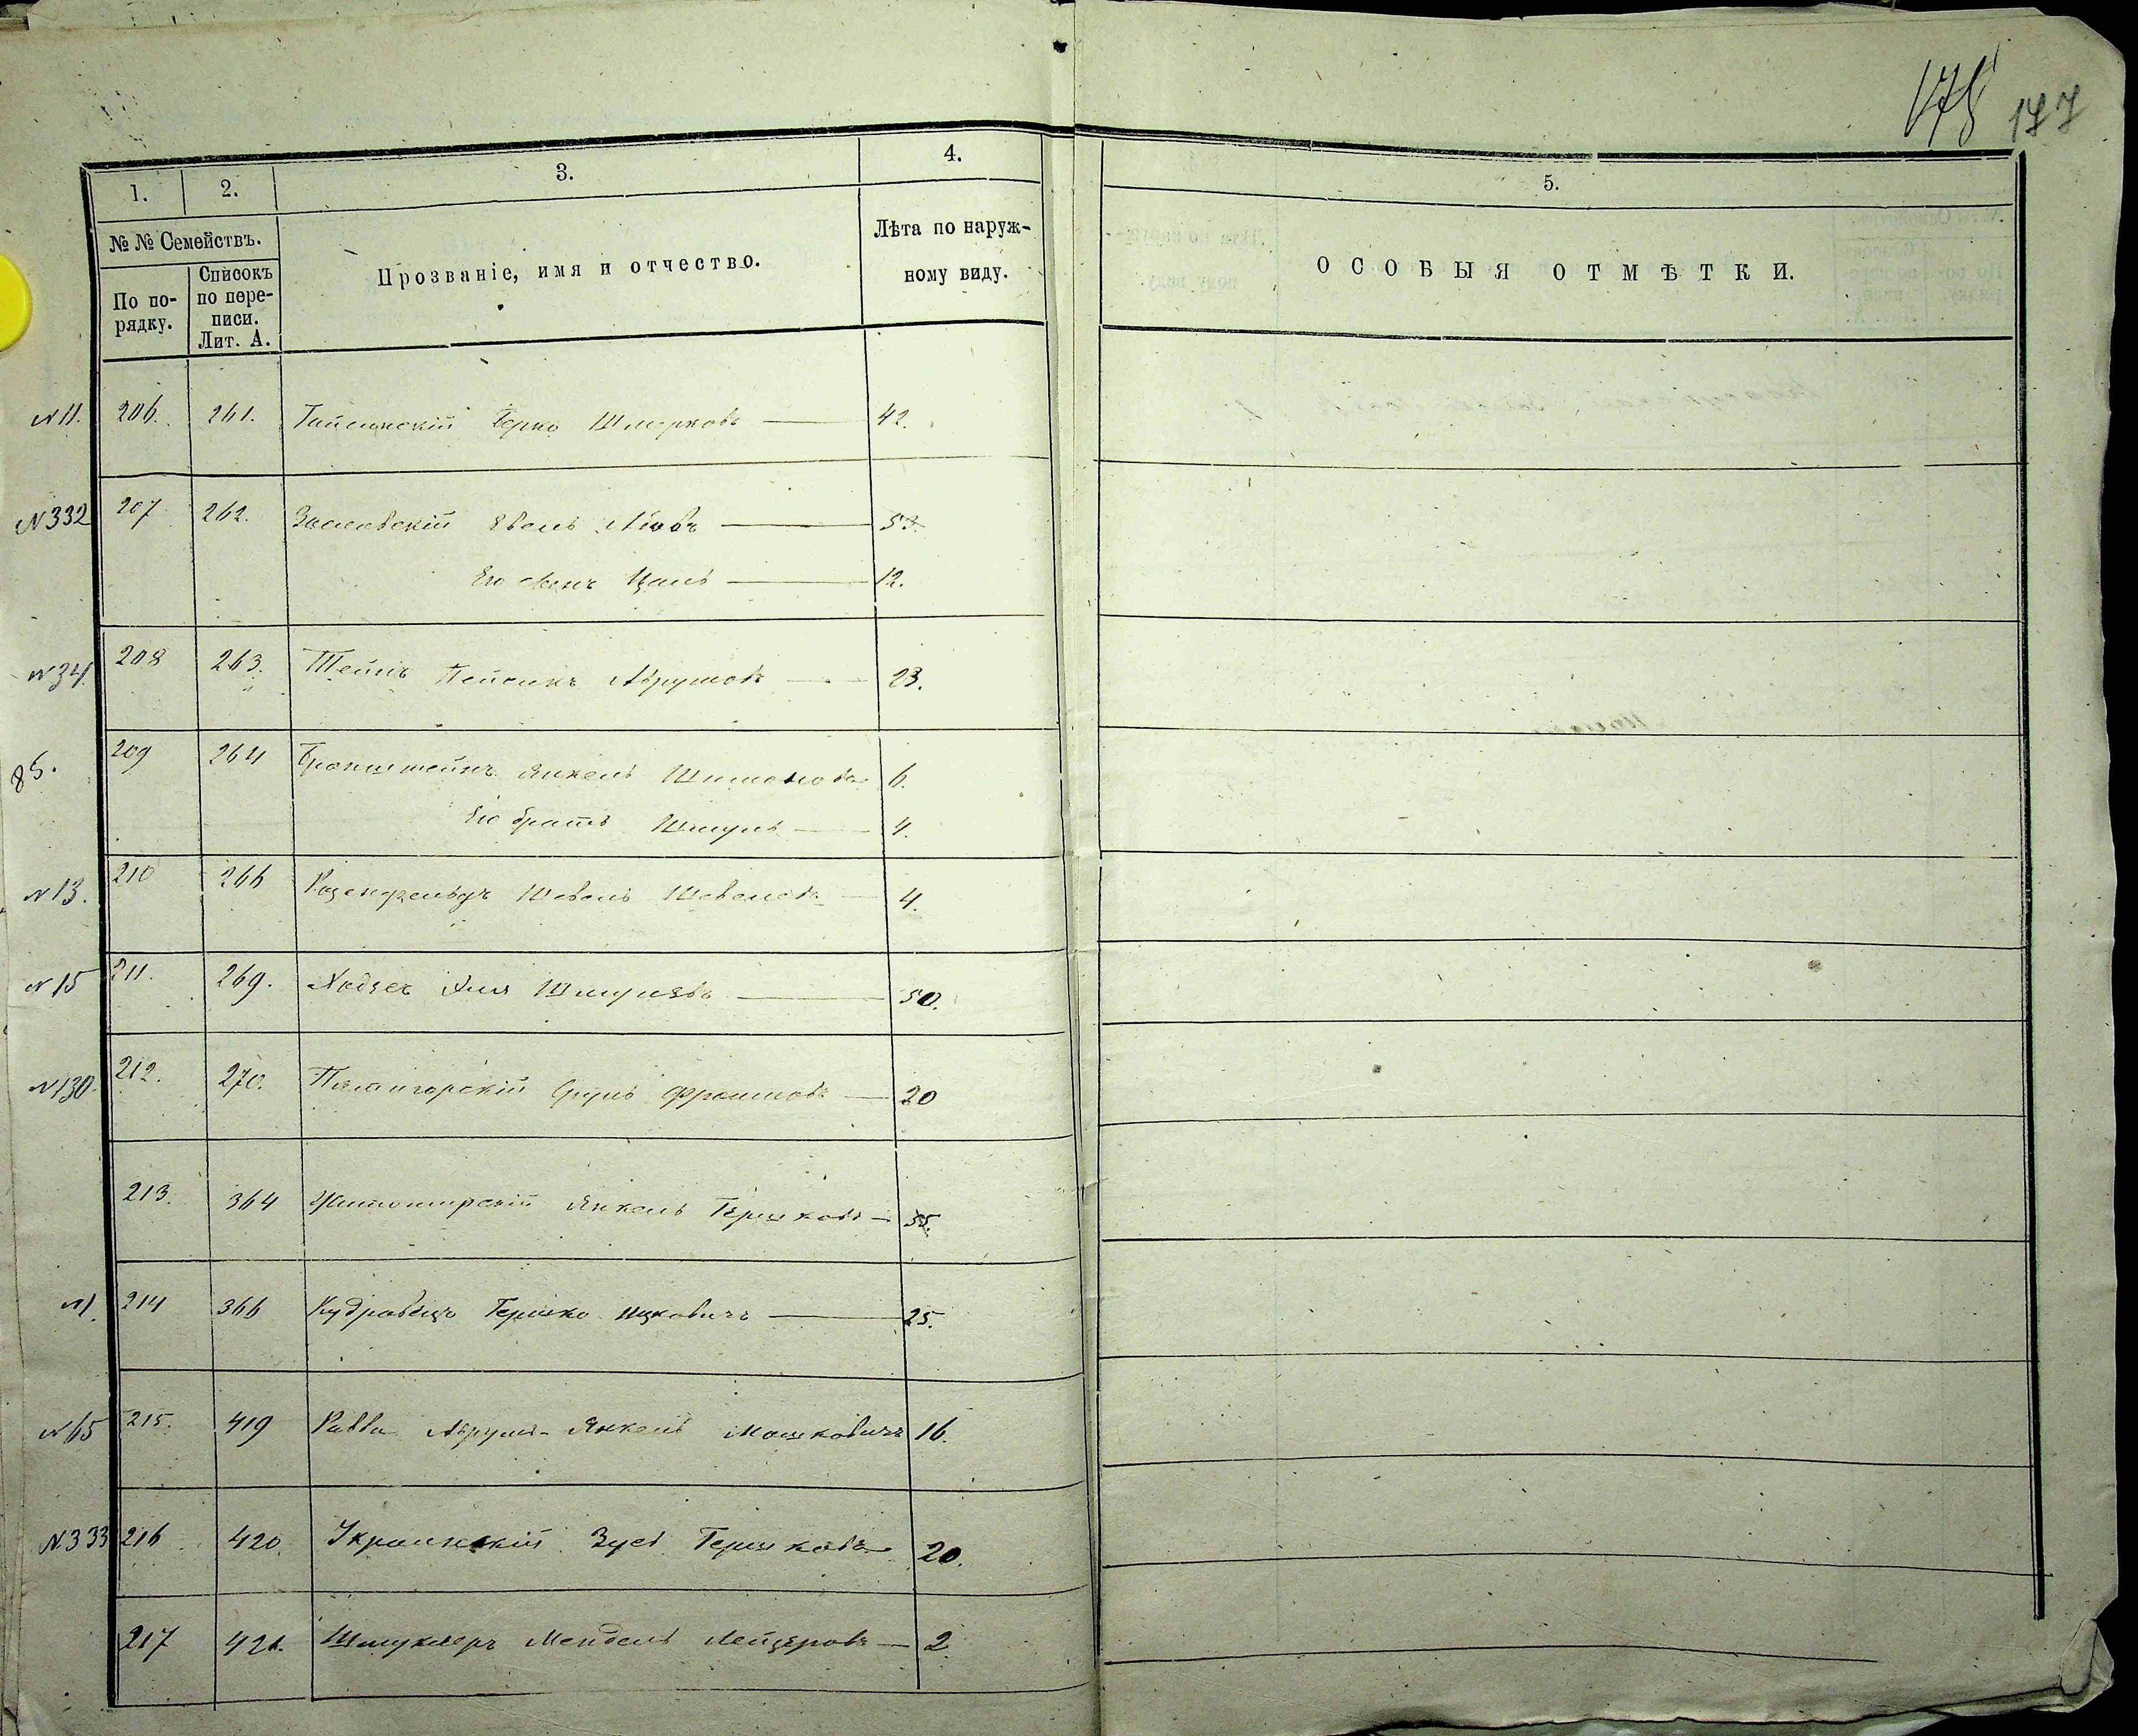 178 177
1. 2. 3. 4. 5.
№ № Семействъ.
По по-
рядку.
Списокъ
по пере-
писи.
Лит. А.
Прозваніе, имя и отчество.
Лѣта по наруж-
ному виду.
ОСОБЫЯ ОТМѢТКИ.
N 11. 206. 261. Гайсинскій Берко Шмерковъ 42.
N 332 207 262. Заславскій Евель Лѣовъ 53.
Его сынъ Цаль 12.
N 34. 208 263. Штейнъ Пейсихъ Аврумовъ 23.
85. 209 264 Бронштейнъ Янкель Шимоновъ 6.
Его братъ Шмуль 4.
N 13. 210 266 Розенфельдъ Шевель Шевелевъ 4.
N 15 211. 269. Эля Шмулевъ 50.
N 130. 212. 270. Срулъ Фроимовъ 20
213. 364 Житомирскій Янкель Гершковъ 55.
N 1. 214 366 Кудравецъ Гершко Ицковичъ 25.
N 65 215. 419 Равва Аврумъ-Янкель Мошковичъ 16.
N. 333 216 420 Украинскій Зусь Гершковъ 20.
217 421. Шмуклеръ Мендель Лейзеровъ 2.